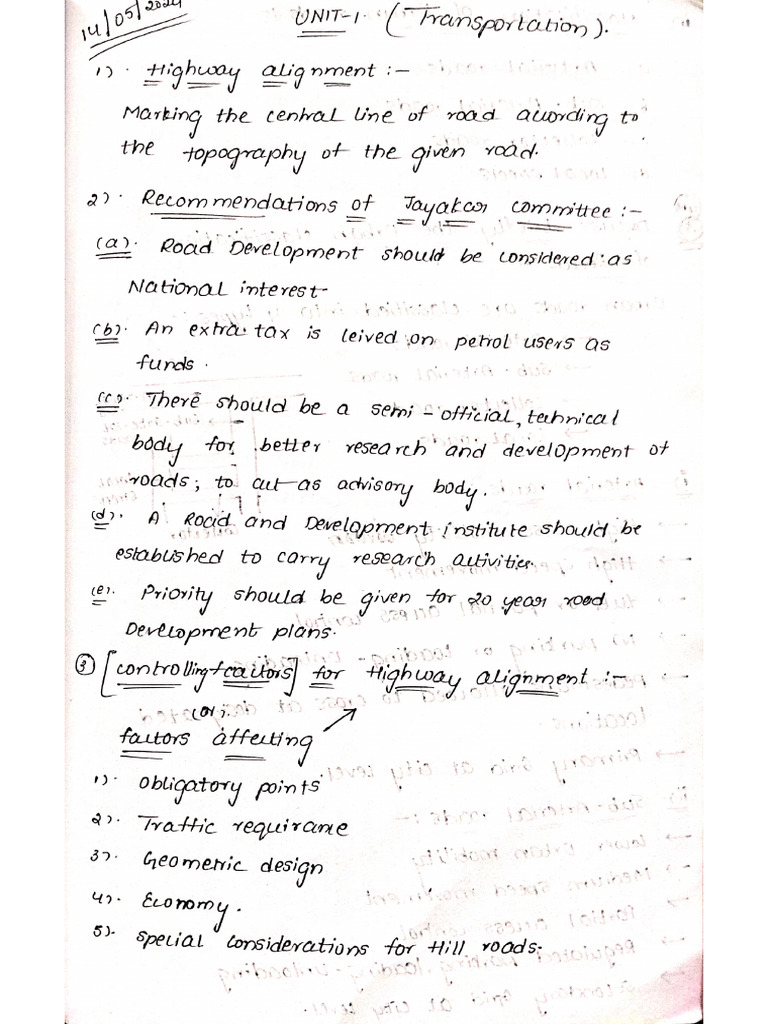 14/05/2024
UNIT-1. (Transportation).
1). Highway alignment :-
Marking the central line of road according to
the topography of the given road.
2). Recommendations of Jayakar committee :-
(a). Road Development should be considered as
National interest-
(b). An extra tax is leived on petrol users as
funds.
(c). There should be a semi-official, technical
body for better research and development of
roads; to act as advisory body.
(d). A Road and Development institute should be
established to carry research activities.
(e). Priority should be given for 20 year road
Development plans.
3) [controlling factors] for Highway alignment :-
(or).
factors affecting
1). obligatory points
2). Traffic requirame
3). Geometric design
4). Economy.
5). special considerations for Hill roads.